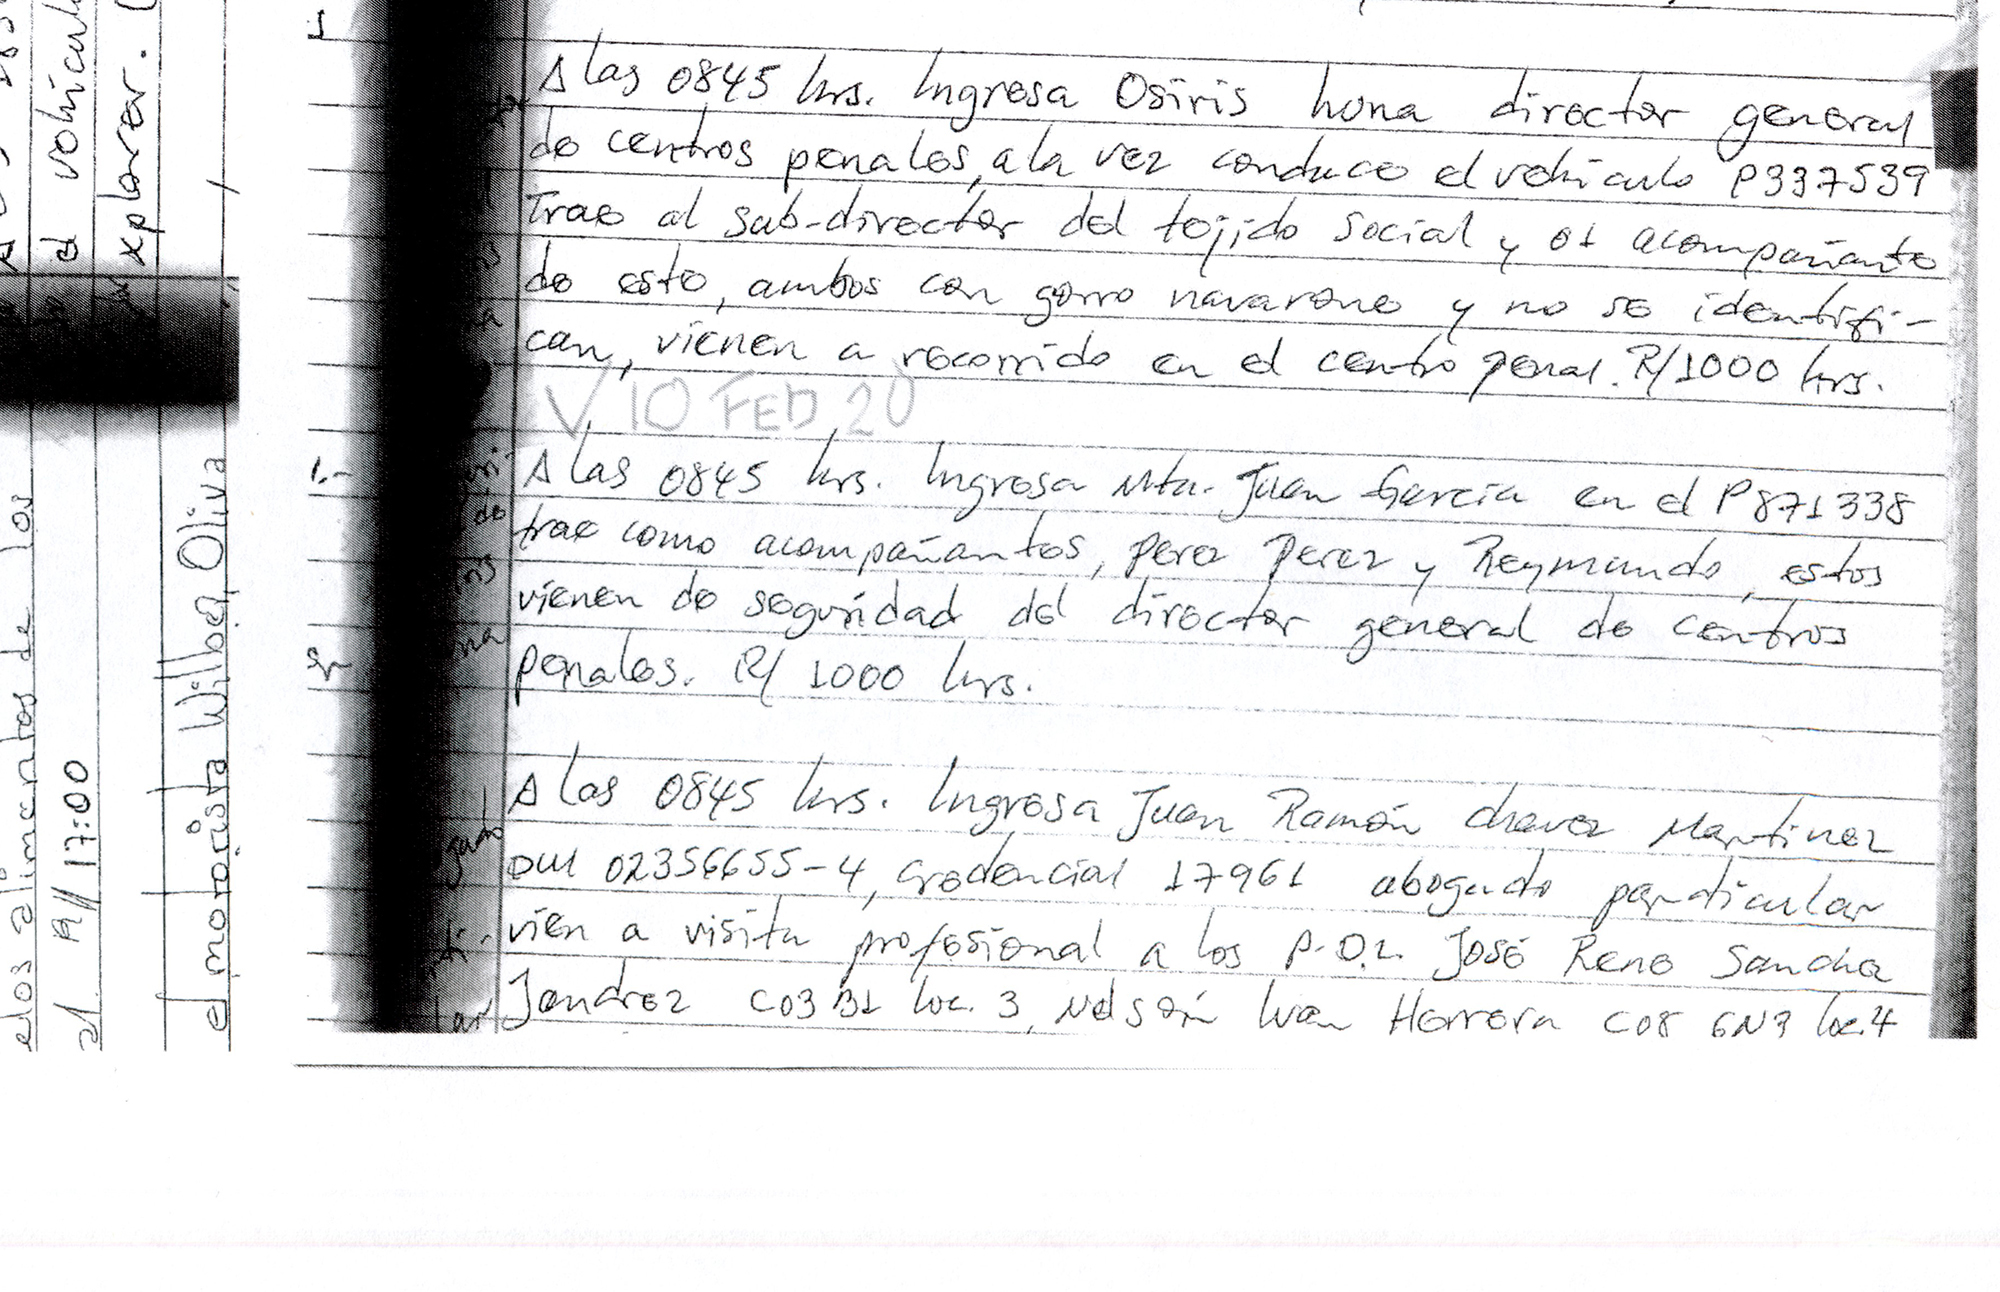 A las 0845 hrs. Ingresa Osiris luna director general
de centros penales, a la vez conduce el vehiculo P337539
Trae al sub-director del tejido social y 01 acompañante
de este, ambos con gorro navarone y no se identifi-
can, vienen a recorrido en el centro penal. R/1000 hrs.
V 10 FEB 20
1.-
A las 0845 hrs. Ingresa Mta. Juan Garcia en el P871338
trae como acompañantes, perez Perez y Reymundo, estos
vienen de seguridad del director general de centros
penales. R/ 1000 hrs.
A las 0845 hrs. Ingresa Juan Ramón chavez Martinez
DUI 02356655-4, credencial 17961 abogado particular
vien a visita profesional a los P.D.L. José Rene Sanchez
Jandrez C03 B1 loc. 3, Nelson Ivan Herrera C08 GN3 loc.4
el vehicul
xplorer.
elos alimentos de los
el R// 17:00
el motorista Wilber Oliva